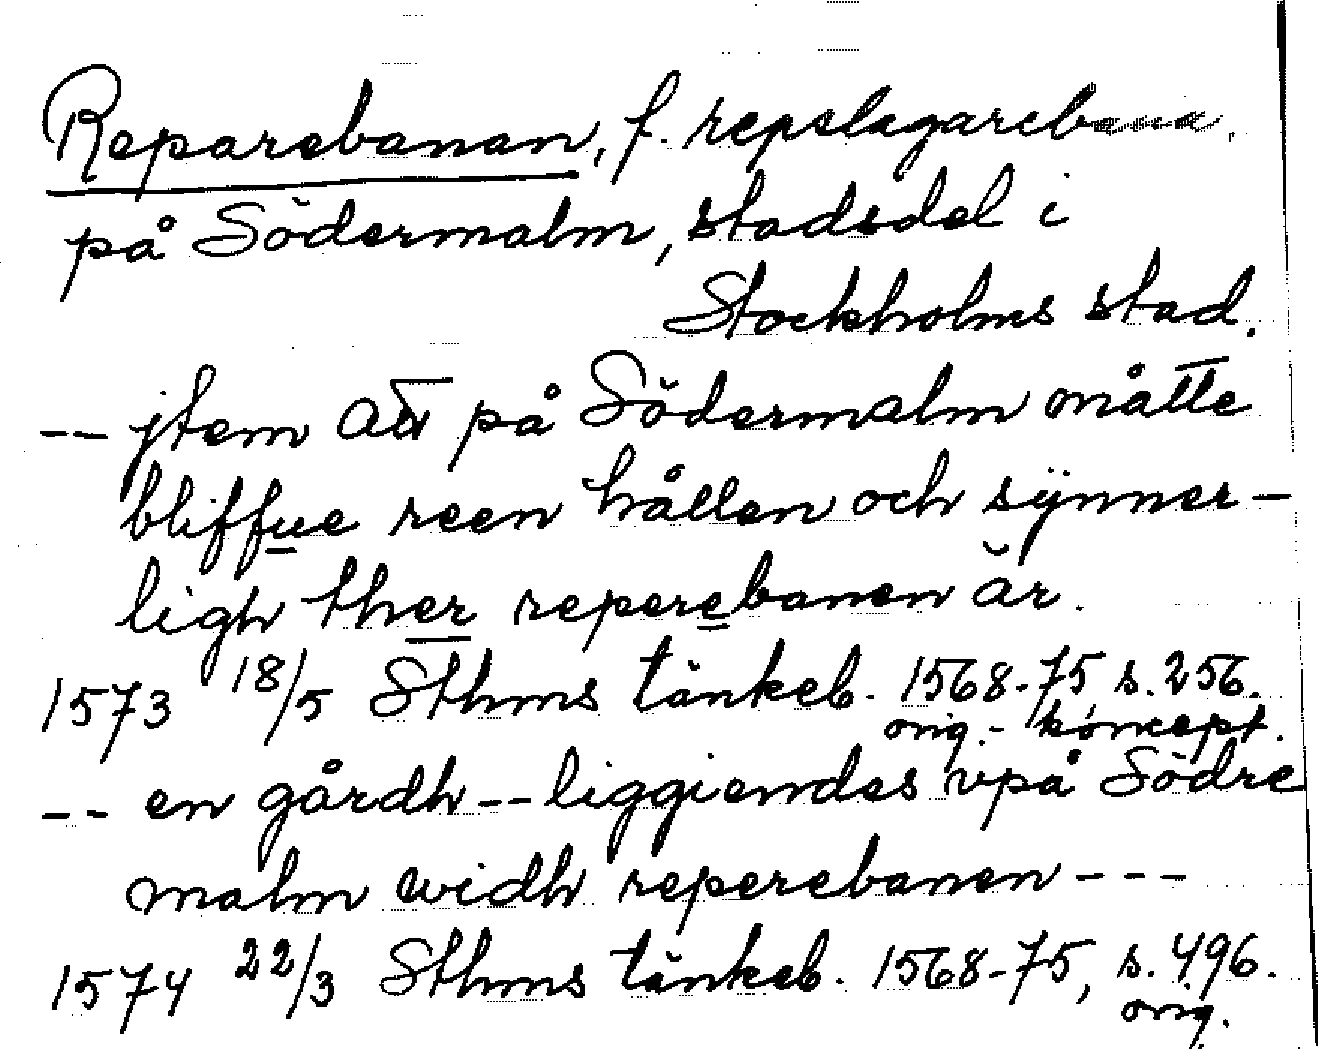 Reparebanan, f. repslagarebana,
på Södermalm, stadsdel i
Stockholms stad.
-- jtem att på Södermalm måtte
bliffue reen hållen och sÿnner-
ligh ther reperebanen är.
1573 18/5 Sthms tänkeb. 1568-75 s. 256.
orig.-koncept.
-- en gårdh -- liggiendes vpå Södre
malm widh reperebanen ---
1574 22/3 Sthms tänkeb. 1568-75, s. 496.
orig.